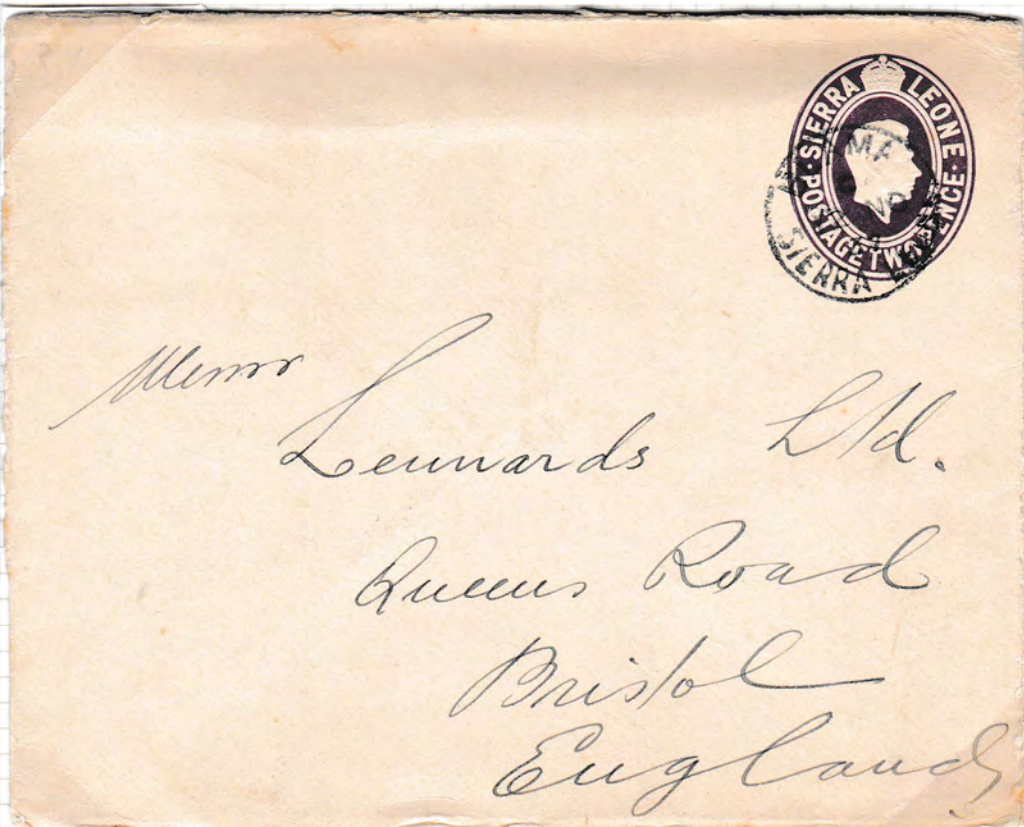 SIERRA LEONE
POSTAGE TWO PENCE
SIERRA LEONE
Messrs
Lennards Ltd.
Queens Road
Bristol
England